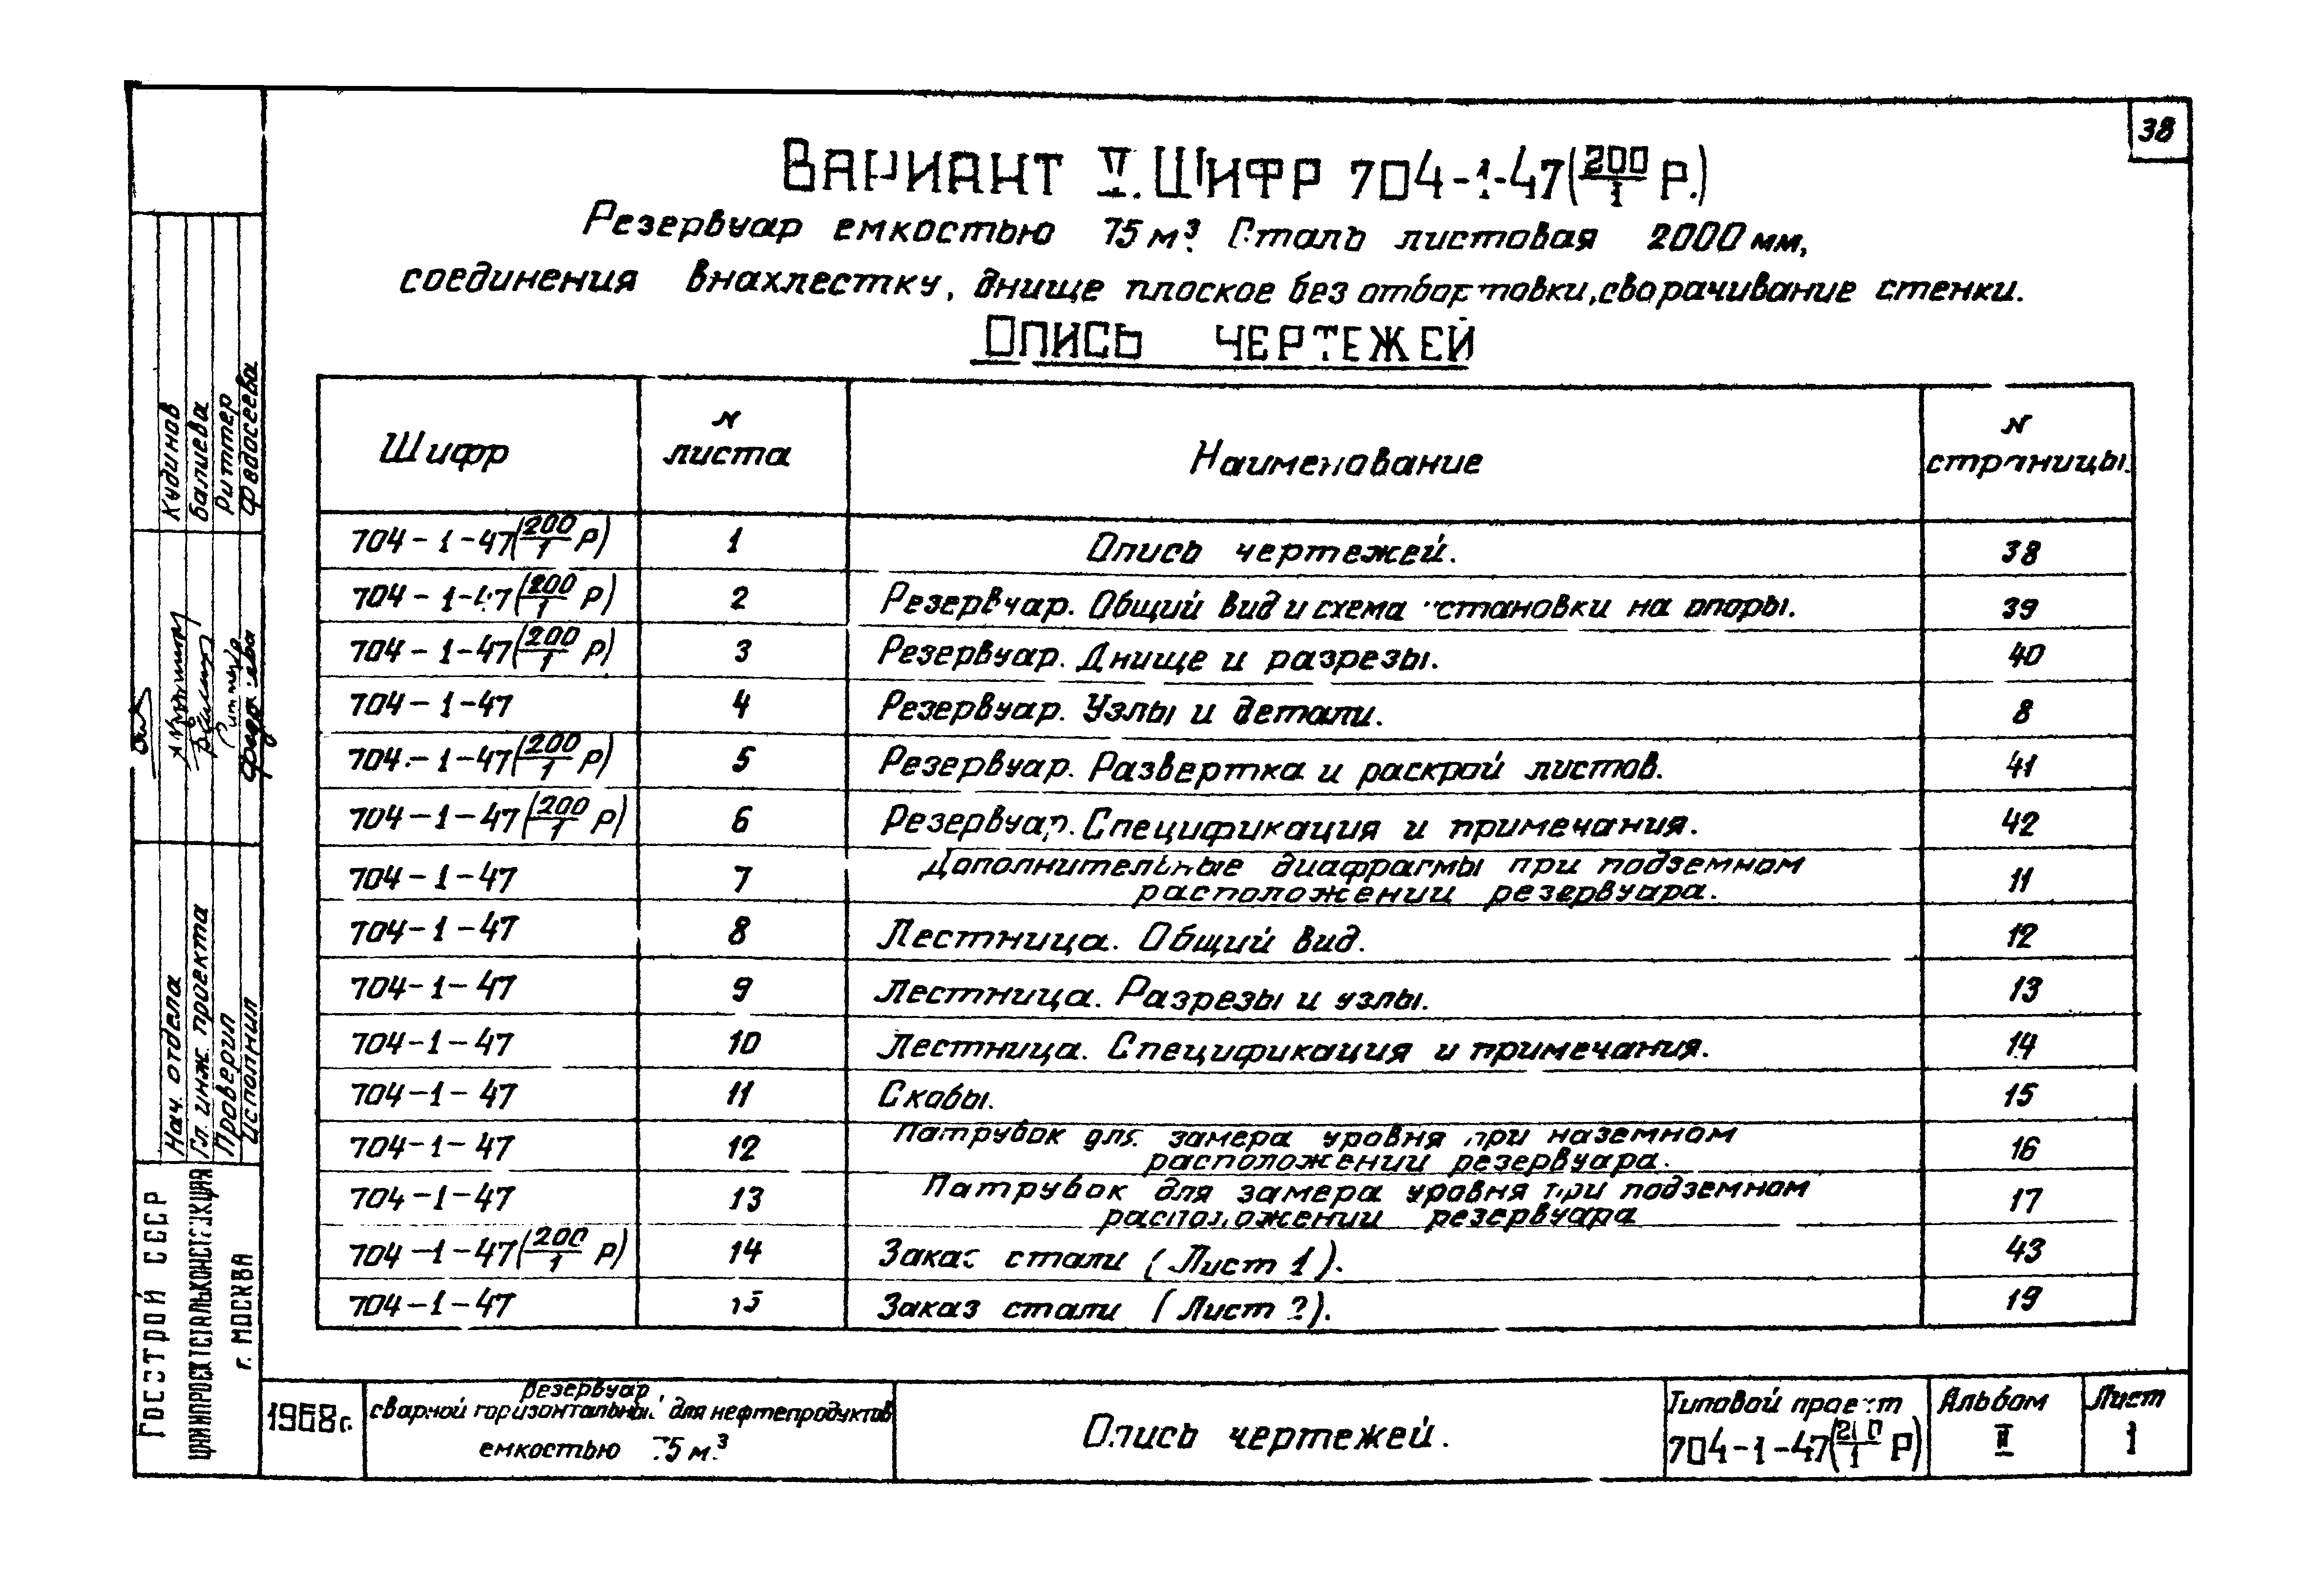 38
ВАРИАНТ V. ШИФР 704-1-47(200/1 Р.)
Резервуар емкостью 75 м³. Сталь листовая 2000 мм,
соединения внахлестку, днище плоское без отбортовки, сворачивание стенки.
ОПИСЬ ЧЕРТЕЖЕЙ
Шифр | N листа | Наименование | N страницы
704-1-47(200/1 Р) | 1 | Опись чертежей. | 38
704-1-47(200/1 Р) | 2 | Резервуар. Общий вид и схема установки на опоры. | 39
704-1-47(200/1 Р) | 3 | Резервуар. Днище и разрезы. | 40
704-1-47 | 4 | Резервуар. Узлы и детали. | 8
704-1-47(200/1 Р) | 5 | Резервуар. Развертка и раскрой листов. | 41
704-1-47(200/1 Р) | 6 | Резервуар. Спецификация и примечания. | 42
704-1-47 | 7 | Дополнительные диафрагмы при подземном расположении резервуара. | 11
704-1-47 | 8 | Лестница. Общий вид. | 12
704-1-47 | 9 | Лестница. Разрезы и узлы. | 13
704-1-47 | 10 | Лестница. Спецификация и примечания. | 14
704-1-47 | 11 | Скобы. | 15
704-1-47 | 12 | Патрубок для замера уровня при наземном расположении резервуара. | 16
704-1-47 | 13 | Патрубок для замера уровня при подземном расположении резервуара | 17
704-1-47(200/1 Р) | 14 | Заказ стали (Лист 1). | 43
704-1-47 | 15 | Заказ стали (Лист 2). | 19
1968г.
Резервуар
сварной горизонтальный для нефтепродуктов
емкостью 75 м³
Опись чертежей.
Типовой проект
704-1-47(200/1 Р)
Альбом
II
Лист
1
ГОССТРОЙ СССР
ЦНИИПРОЕКТСТАЛЬКОНСТРУКЦИЯ
г. МОСКВА
Нач. отдела Кудинов
Гл. инж. проекта Балиева
Проверил Риттер
Исполнил Федосеева